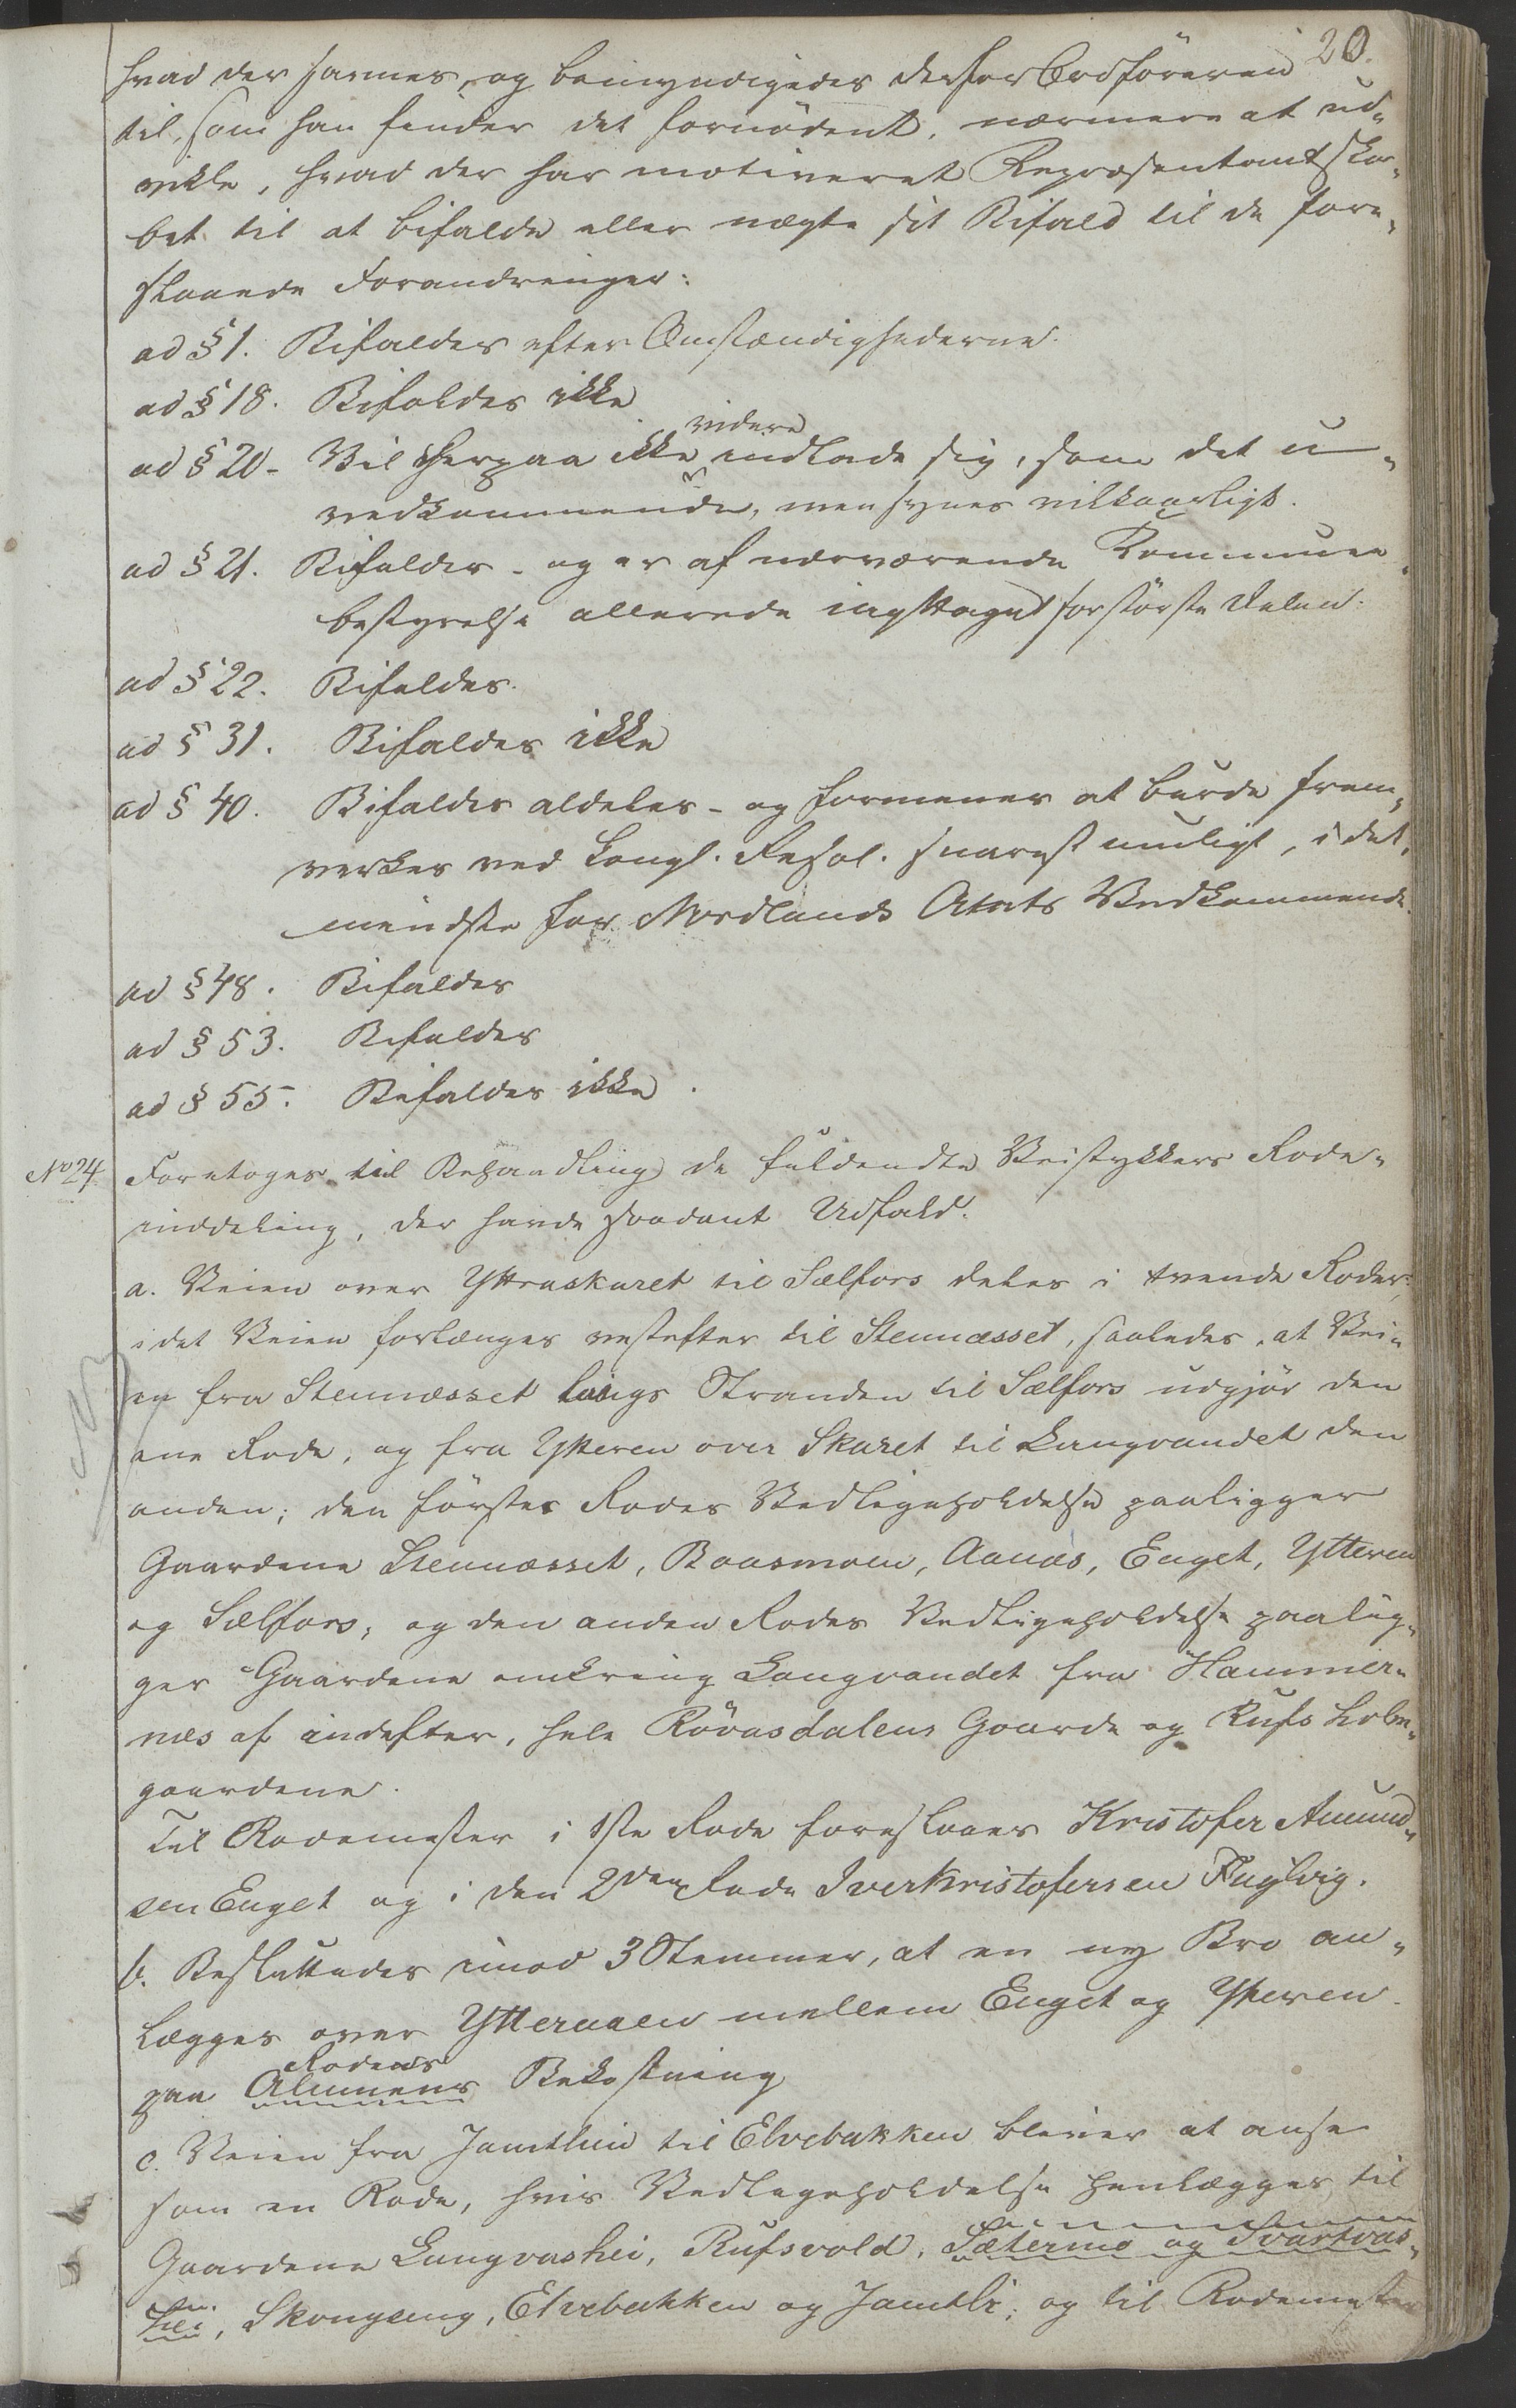 20.
hvad der savnes, og bemyndiges derfor Ordföreren
til, som han finder det fornödent, nærmere at ud-
vikle, hvad der har motiveret Repræsentantskabet
bet til at bifalde eller nægte sit Bifald til de fore-
slaaede Forandringer:
ad § 1. Bifaldes efter Omstændighederne.
ad § 18. Bifaldes ikke
ad § 20 - Vil herpaa ikke videre indlade sig, som det u-
vedkommende, men synes vilkaarligt.
ad § 21. Bifaldes - og er af nærværende Kommune-
bestyrelse allerede iagttaget for störste Delen.
ad § 22. Bifaldes.
ad § 31. Bifaldes ikke
ad § 40. Bifaldes aldeles - og formenes at burde frem-
virkes ved Kongl. Resol. snarest muligt, i det
mindste for Nordlands Amts Vedkommende.
ad § 48. Bifaldes
ad § 53. Bifaldes
ad § 55. Bifaldes ikke.
No 24. Foretoges til Behandling de fuldendte Veistykkers Rode-
inddeling, der havde saadant Udfald:
a. Veien over Ytteraskaret til Sælfors deles i tvende Roder,
idet Veien forlænges vestefter til Stennæsset, saaledes, at Vei-
en fra Stennæsset langs Stranden til Sælfors udgjör den
ene Rode, og fra Ytteren over Skaret til Langvandet den
anden; den förstes Rodes Vedligeholdelse paaligger
Gaardene Stennæsset, Baasmoen, Aanæs, Enget, Ytteren
og Sælfors, og den anden Rodes Vedligeholdelse paalig-
ger Gaardene omkring Langvandet fra Hammer-
næs af indefter, hele Rövasdalens Gaarde og Rufsholm-
gaardene.
Til Rodemester i 1ste Rode foreslaaes Kristofer Amund-
sen Enget og i den 2den Rode Iver Kristofersen Fuglvig.
b. Besluttedes imod 3 Stemmer, at en ny Bro an-
lægges over Ytteraaen mellem Enget og Ytteren
Rodens
paa Almuens Bekostning
c. Veien fra Jamtlien til Elvebakken bliver at anse
som en Rode, hvis Vedligeholdelse henlægges til
Gaardene Langvashei, Rufsvold, Sætermo og Svartvas-
hei, Skonseng, Elvebakken og Jamtli; og til Rodemester